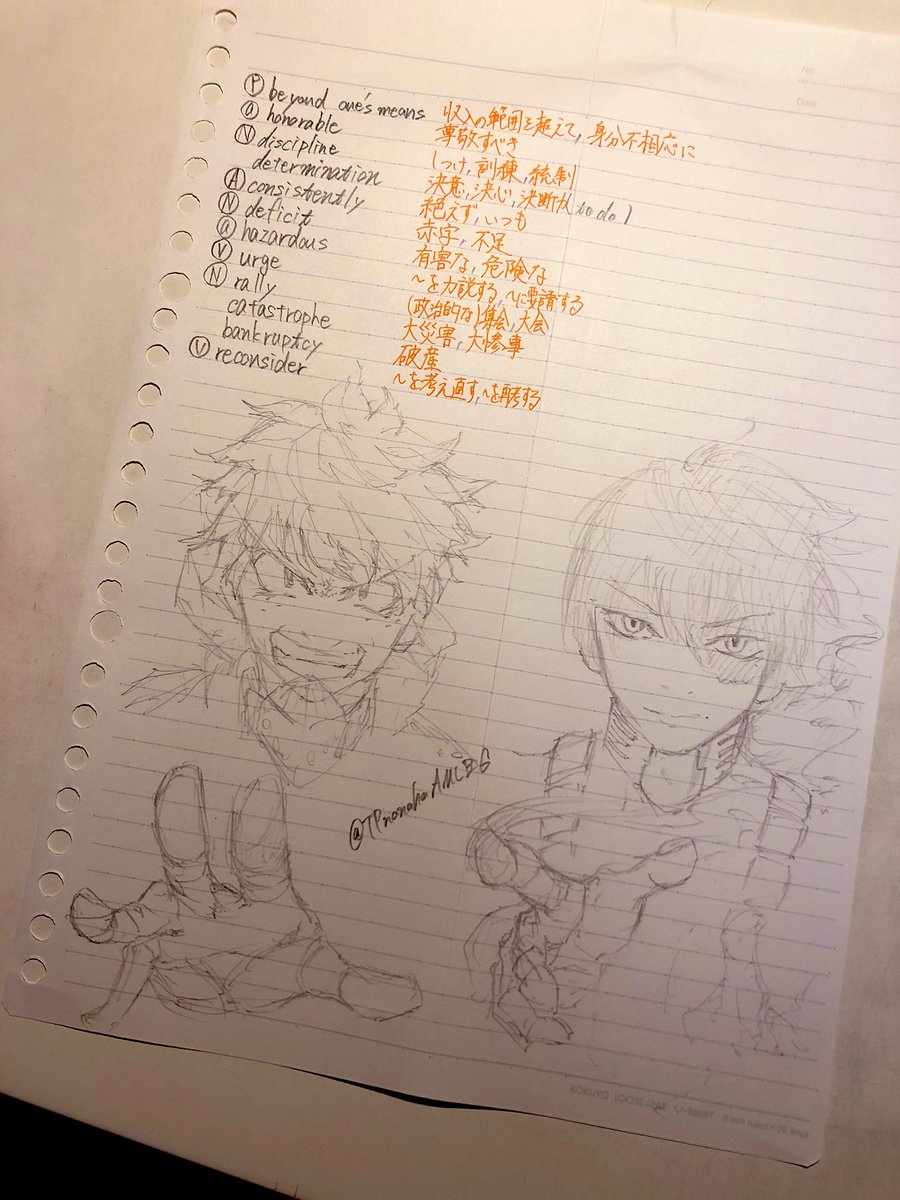 Ⓟ beyond one's means 収入の範囲を超えて, 身分不相応に
ⓐ honorable 尊敬すべき
Ⓝ discipline しつけ, 訓練, 統制
determination 決意, 決心, 決断力(to do)
Ⓐ consistently 絶えず, いつも
Ⓝ deficit 赤字, 不足
ⓐ hazardous 有害な, 危険な
Ⓥ urge ～を力説する, ～に要請する
Ⓝ rally (政治的な)集会, 大会
catastrophe 大災害, 大惨事
bankruptcy 破産
Ⓥ reconsider ～を考え直す, ～を再考する
No.
Date
KOKUYO LOOSE-LEAF